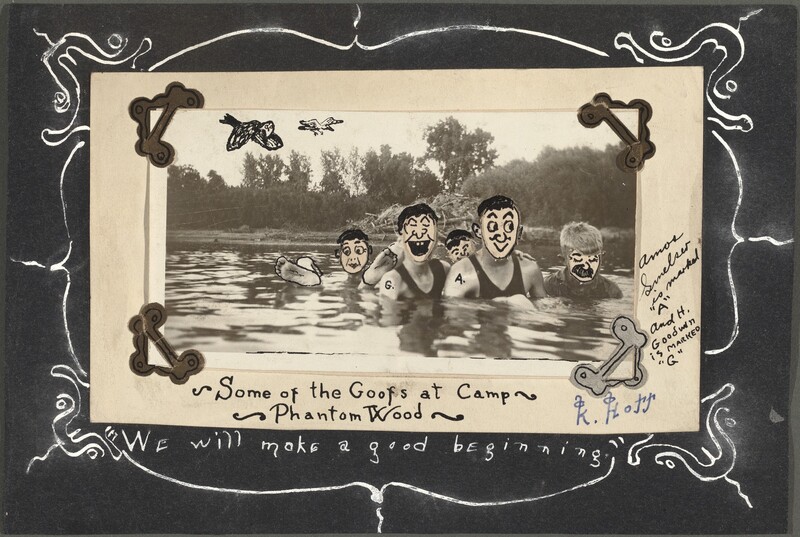 G.
A.
Amos
Smelser
is marked
"A"
and H.
Goodwn
is MARKED
"G"
Some of the Goofs at Camp
Phantom Wood
K. Hoff
"WE will make a good beginning."